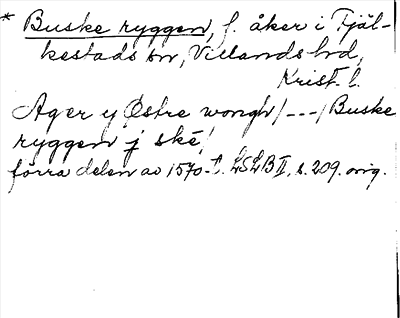 * Buske ryggen, f. åker i Tjäl-
kestads sn, Villands hd,
Krist. l.
Ager y Østre wongh /---/ Buske
ryggen j ské/
förra delen av 1570-t. LSLB II, s. 209. orig.